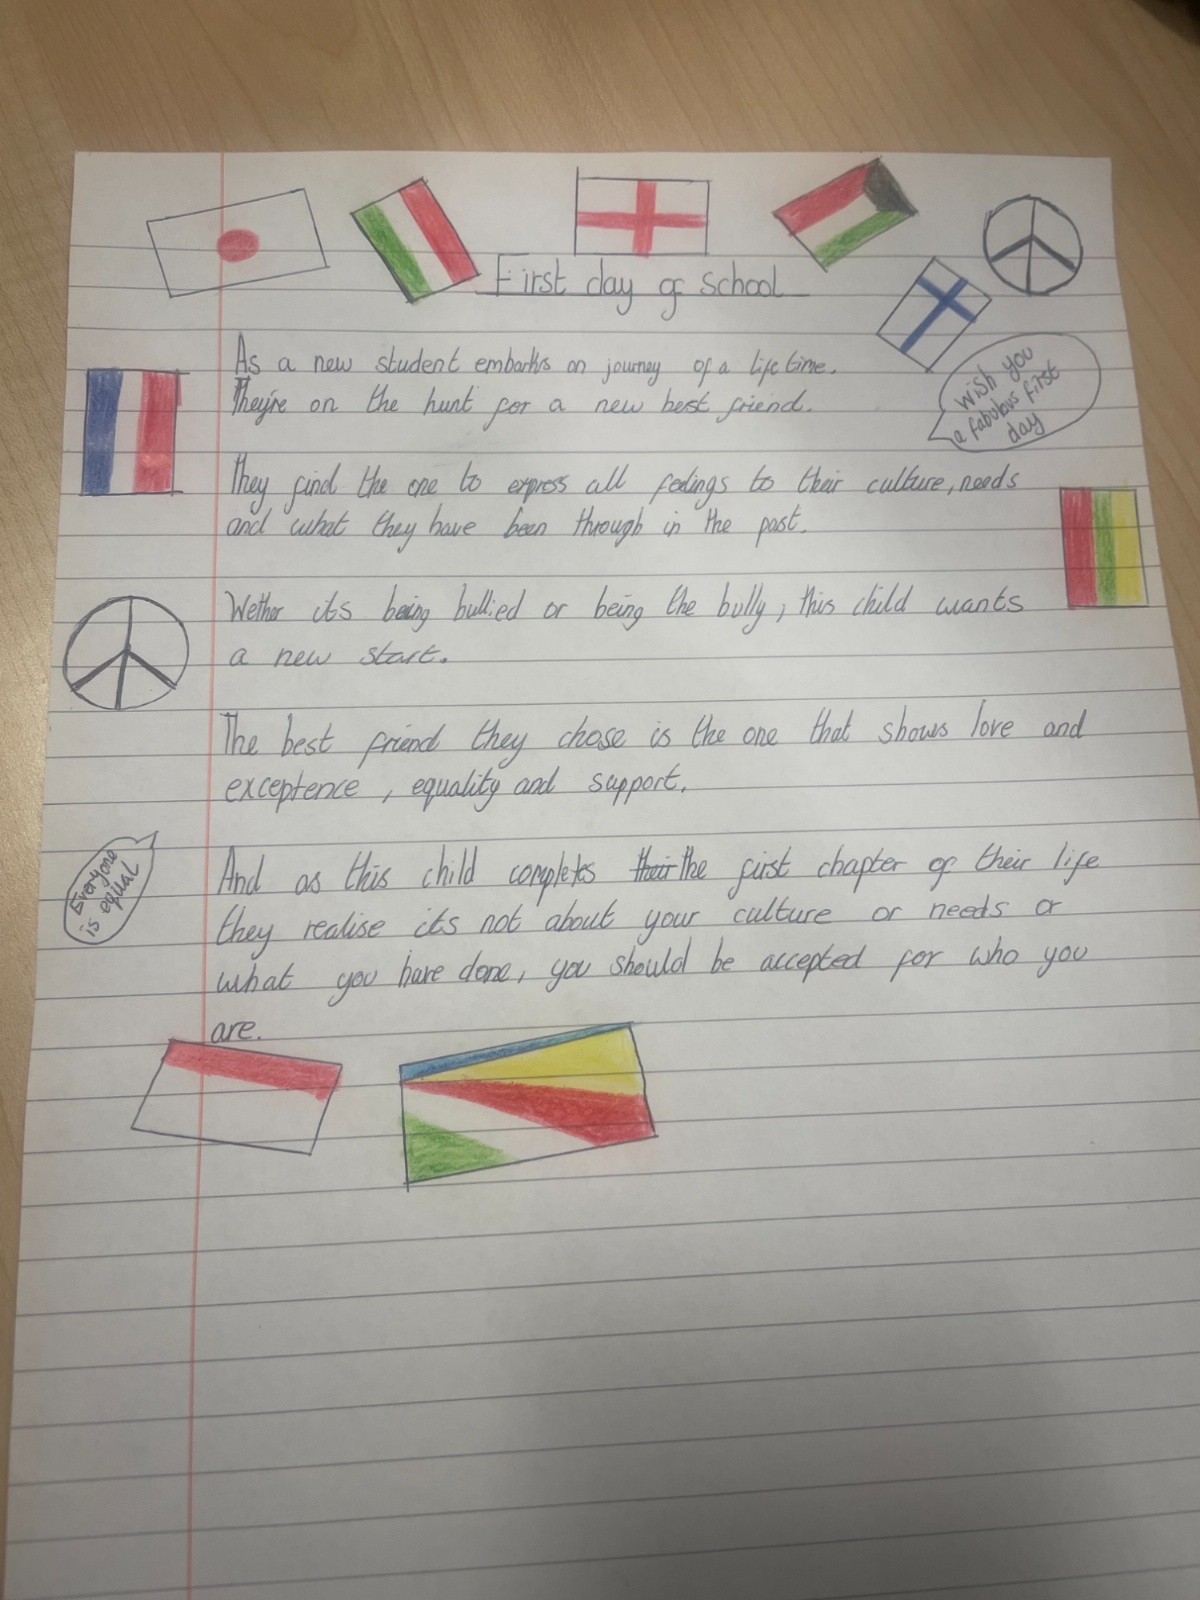 First day of school
As a new student embarks on journey of a life time.
They're on the hunt for a new best friend.
wish you
a fabulous first
day
They find the one to express all feelings to their culture, needs
and what they have been through in the past.
Wether its being bullied or being the bully, this child wants
a new start.
The best friend they chose is the one that shows love and
exceptence, equality and support.
Everyone
is equal
And as this child completes their the first chapter of their life
they realise its not about your culture or needs or
what you have done, you should be accepted for who you
are.